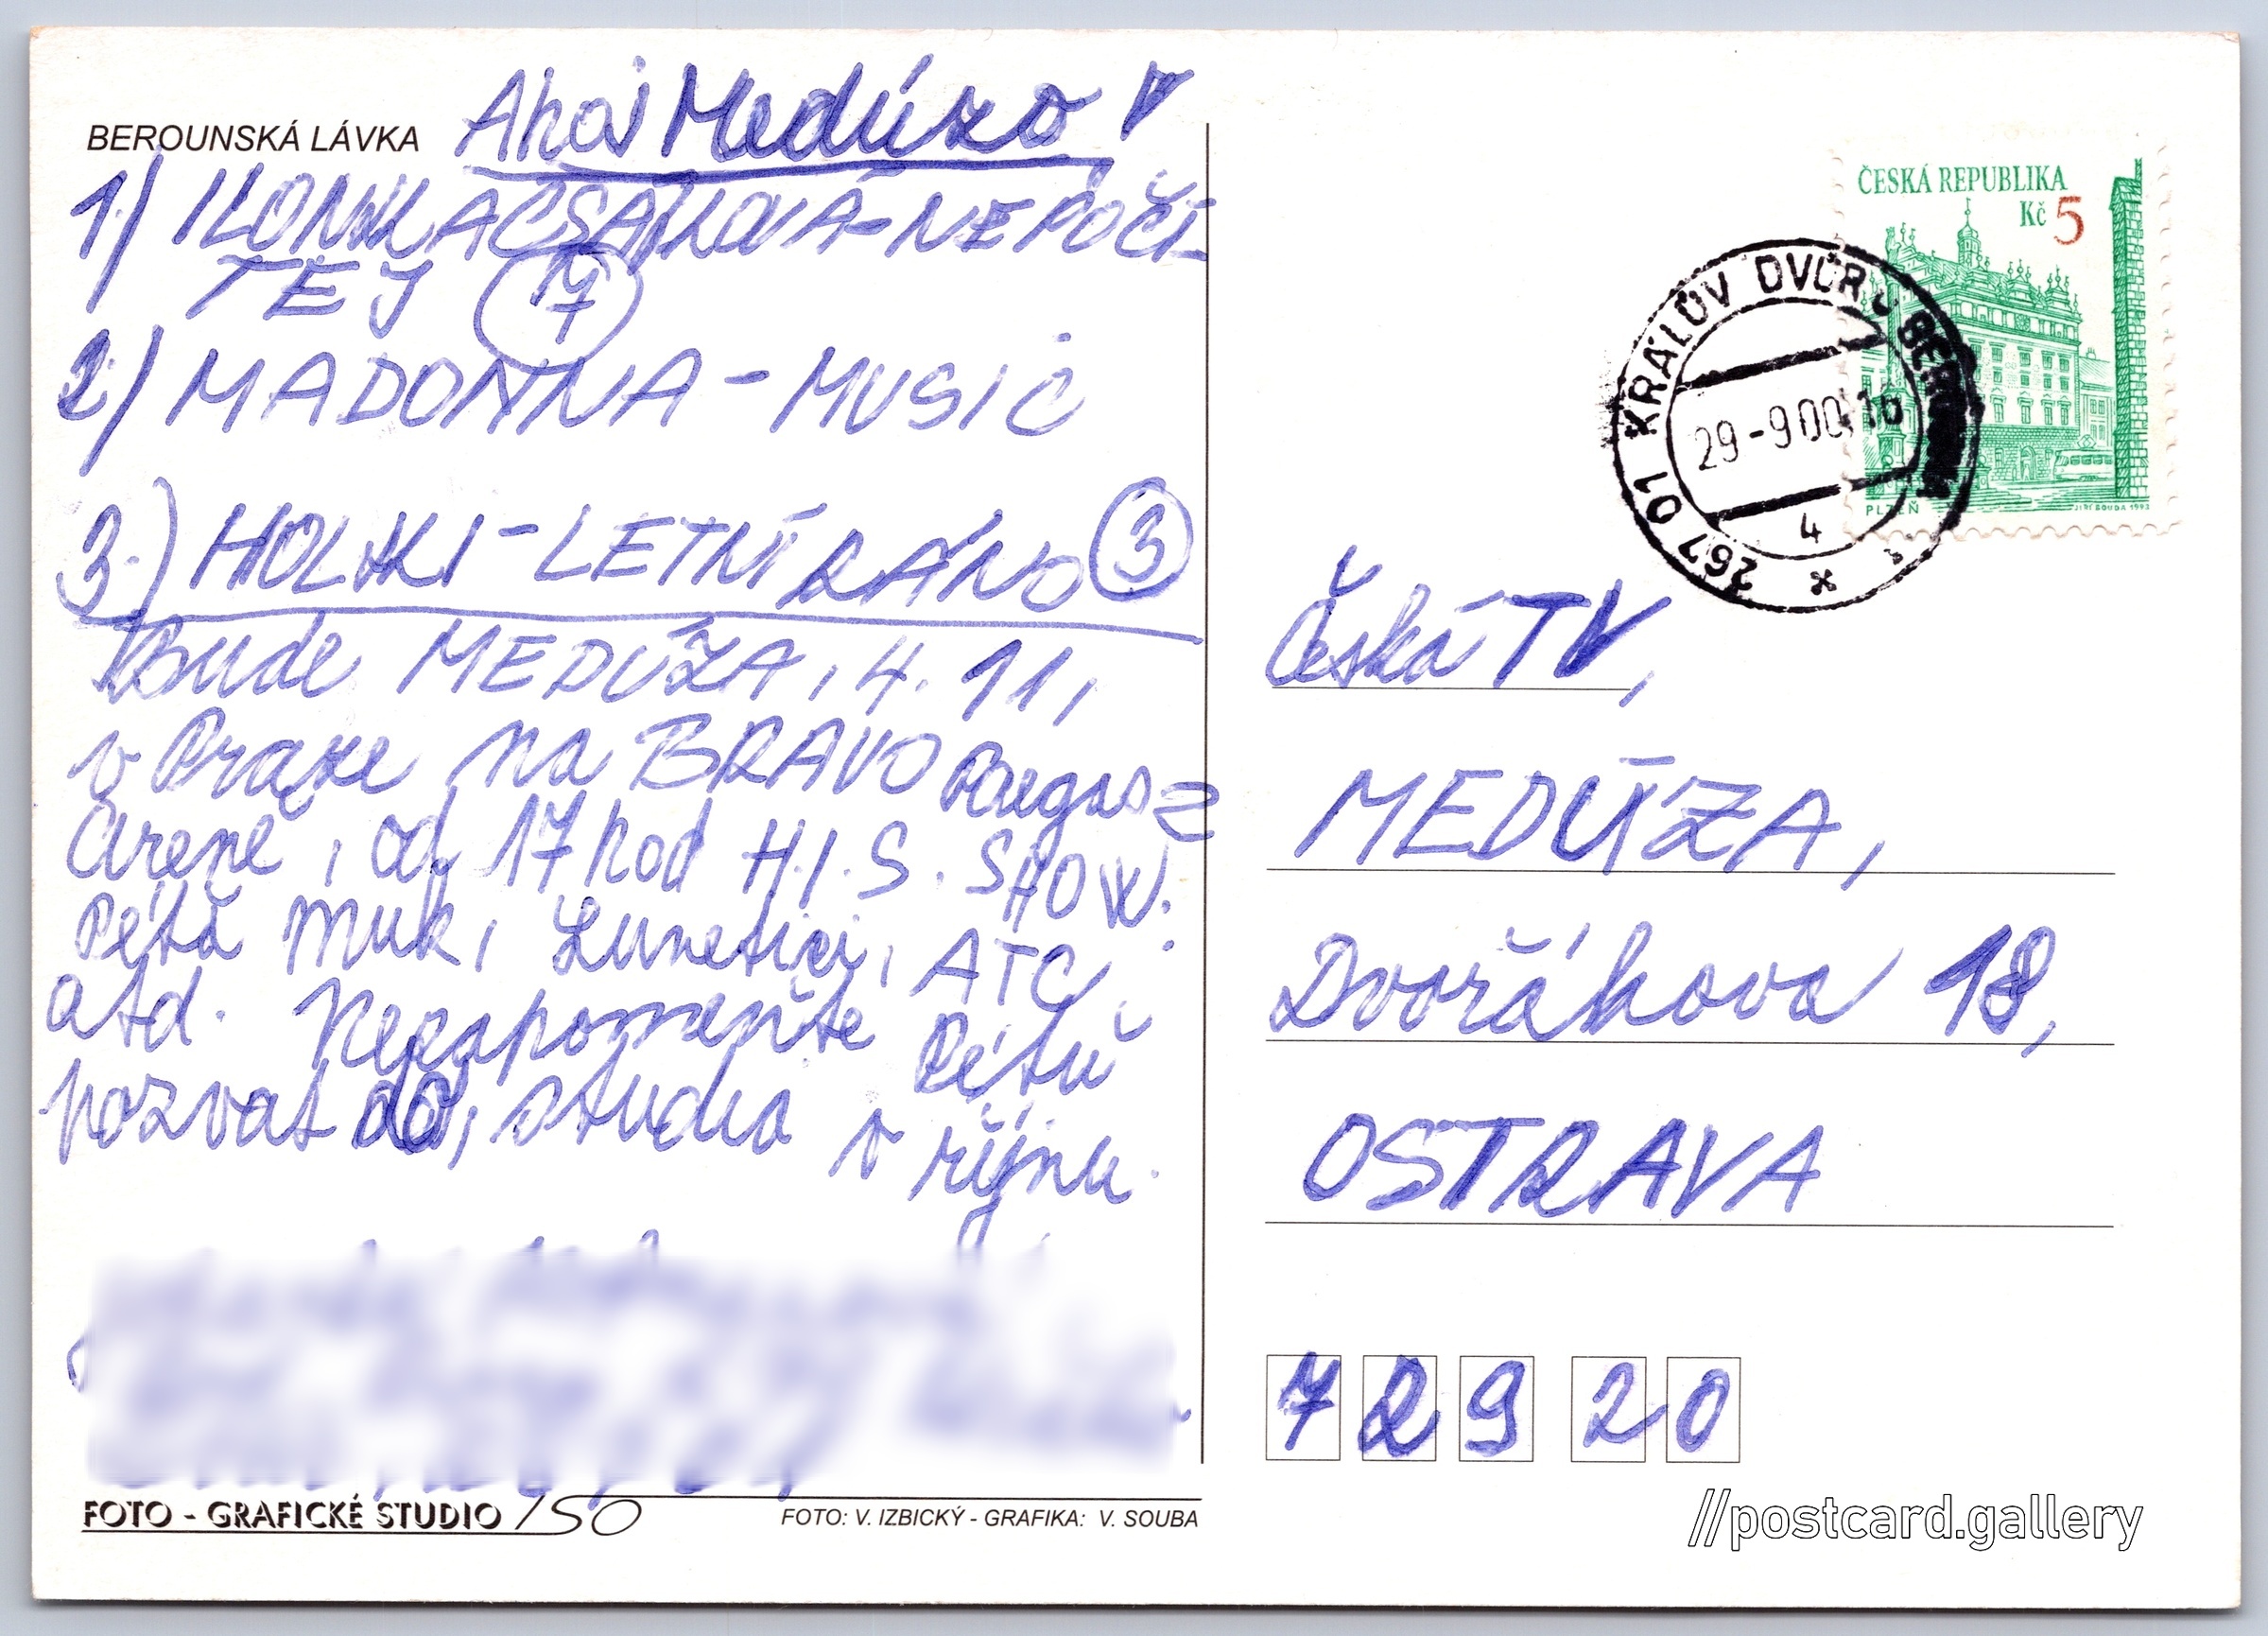 BEROUNSKÁ LÁVKA
Ahoj Medúzo
1) ILONKA CSÁKOVÁ-NEPOČÍ-
TEJ 7
2) MADONNA - MUSIC
3.) HOLKI - LETNÍ RÁNO 3
Bude MEDÚZA, 4. 11,
v Praze na BRAVO Paegas=
Areně, od 17 hod H.I.S. SHOW:
Péťa Muk, Lunetici, ATC,
atd. Nezapomeňte Péťu
pozvat do, studia v říjnu.
FOTO - GRAFICKÉ STUDIO ISO
FOTO: V. IZBICKÝ - GRAFIKA: V. SOUBA
ČESKÁ REPUBLIKA
Kč 5
PLZEŇ
JIŘÍ BOUDA 1993
267 01 KRÁLŮV DVŮR U BEROUNA
29-9 00 16
4
Česká TV,
MEDÚZA,
Dvořákova 18,
OSTRAVA
729 20
//postcard.gallery